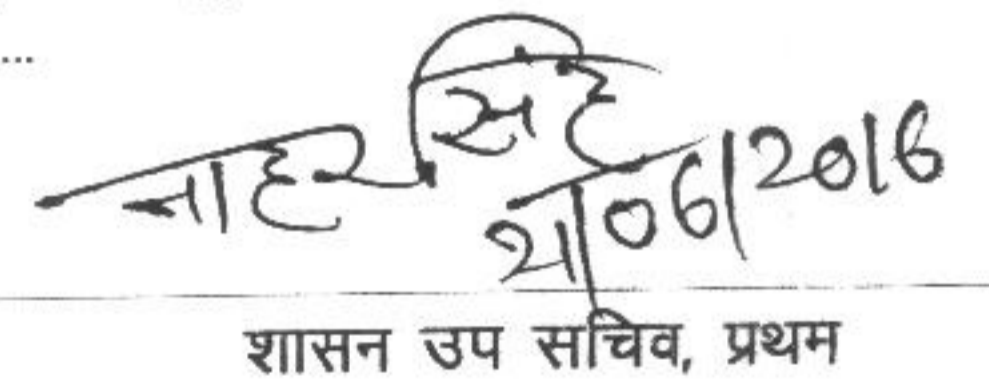 ...
नाहर सिंह
21/06/2016
शासन उप सचिव, प्रथम